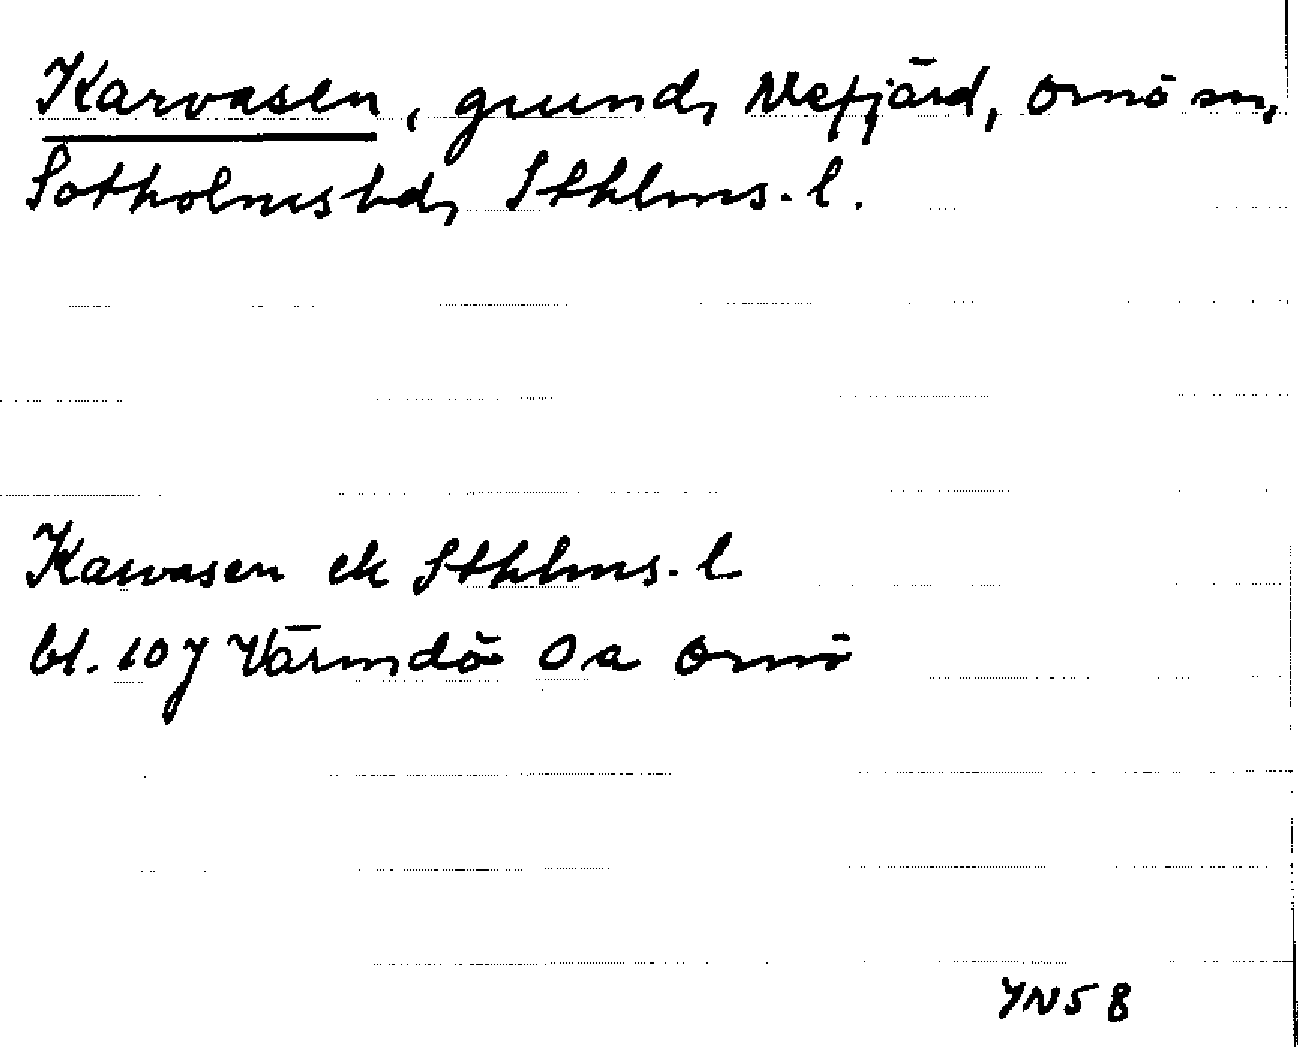 Karvasen, grund, Mefjärd, Ornö sn,
Sotholms hd, Sthlms. l.
Karvasen ek Sthlms. l
bl. 107 Värmdö Oa Ornö
YN58